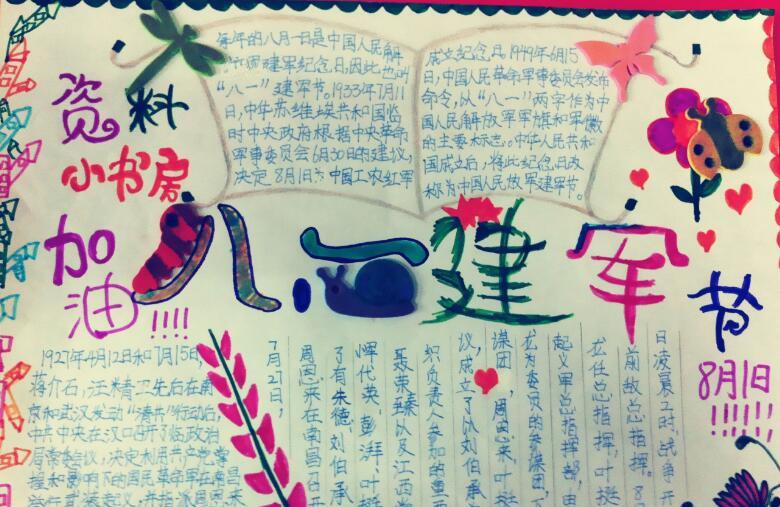 资料
小书房
加油
!!!!
每年的八月一日是中国人民解
建军纪念日,因此也叫
“八一”建军节。1933年7月11
日,中华苏维埃共和国临
时中央政府根据中央革命
军事委员会6月30日的建议,
决定8月1日为中国工农红军
成立纪念日。1949年6月15
日,中国人民革命军事委员会发布
命令,以“八一”两字作为中
国人民解放军军旗和军徽
的主要标志。中华人民共和
国成立后,将此纪念日改
称为中国人民放军建军节。
八一建军
节
8月1日
!!!!!!
1927年4月12日和7月15日,
蒋介石,汪精卫先后在南
京和武汉发动“清共”行动后,
中共中央在汉口召开了临政治
局常委会议,决定利用共产党掌
握和影响下的国民革命军在南昌
日凌晨2时,战争开
前敌总指挥。8
龙任总指挥,叶挺
起义军总指挥部,由
龙为委员的参谋团,下
谋团,周恩来、叶挺
议,成立了以刘伯承
织负责人参加的重
聂荣臻以及江西
恽代英、彭湃、叶挺
了有朱德、刘伯承
周恩来在南昌召开
7月21日,